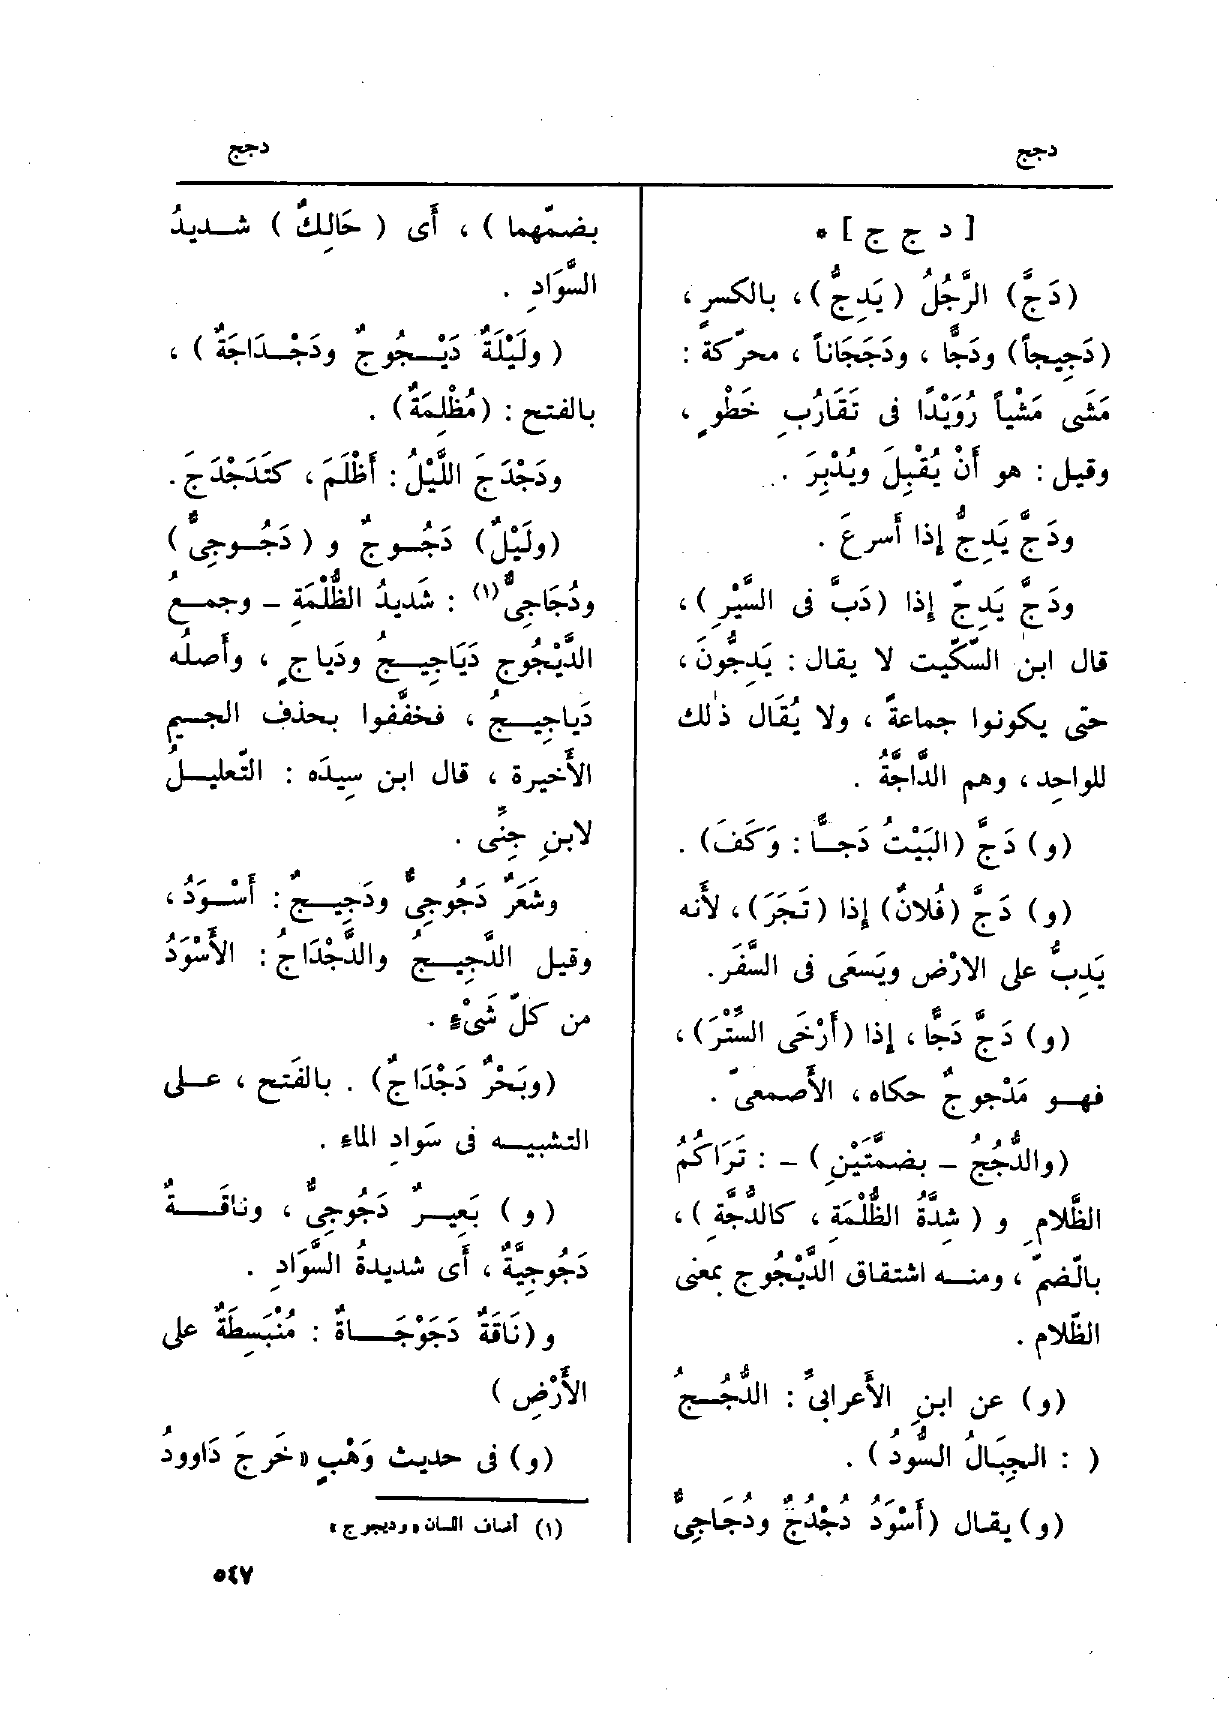 دجج
دجج
[ د ج ج ] *
(دَجَّ) الرَّجُلُ (يَدِجُّ)، بالكسرِ،
(دَجِيجاً) ودَجًّا ، ودَجَجَاناً ، محرّكةً :
مَشَى مَشْياً رُوَيْدًا فى تَقَارُبِ خَطْوٍ ،
وقيل : هو أَنْ يُقْبِلَ ويُدْبِرَ .
ودَجَّ يَدِجُّ إذا أَسرعَ .
ودَجَّ يَدِجّ إذا (دَبَّ فى السَّيْرِ )،
قال ابن السّكّيت لا يقال : يَدِجُّونَ،
حتى يكونوا جماعةً ، ولا يُقَال ذٰلك
للواحِد ، وهم الدَّاجَّةُ .
(و) دَجَّ (البَيْتُ دَجــًّا : وَكَفَ) .
(و) دَجَّ (فُلانٌ) إذا (تَجَرَ)، لأَنه
يَدِبُّ على الارْض ويَسعَى فى السَّفَر.
(و) دَجَّ دَجًّا ، إذا (أَرْخَى السِّتْرَ)،
فهــو مَدْجوجٌ حكاه ، الأَصمعىّ .
(والدُّجُجُ ــ بضمَّتَيْنِ ) ــ : تَرَاكُمُ
الظَّلامِ و ( شِدَّةُ الظُّلْمَةِ ، كالدُّجَّةِ )،
بالضمّ ، ومنــه اشتقاق الدَّيْجُوج بمعنى
الظّلام .
(و) عن ابنِ الأَعرابىّ : الدُّجُــجُ
( : الجِبَالُ السُّودُ ) .
(و) يقال (أَسْوَدُ دُجْدُجٌ ودُجَاجِىٌّ
بضمّهما ) ، أَى ( حَالِكٌ ) شــديدُ
السَّوَادِ .
( ولَيْلَةٌ دَيْــجُوجٌ ودَجْــدَاجَةٌ ) ،
بالفتح : (مُظْلِمَةٌ) .
ودَجْدَجَ اللَّيْلُ : أَظْلَمَ ، كتَدَجْدَجَ.
(ولَيْلٌ) دَجُــوجٌ و ( دَجُــوجِىٌّ )
ودُجَاجِىٌّ(١) : شَديدُ الظُّلْمَةِ ــ وجمــعُ
الدَّيْجُوج دَيَاجِيــجُ ودَياجٍ ، وأَصلُه
دَياجِيــجُ ، فخفَّفوا بحذف الجــيم
الأَخيرة ، قال ابن سِيدَه : التّعليــلُ
لابنِ جِنِّى .
وشَعَرٌ دَجُوجِىٌّ ودَجِيــجٌ : أَسْــوَدُ،
وقيل الدَّجِيــجُ والدَّجْدَاجُ : الأَسْوَدُ
من كلّ شَىْءٍ .
(وبَحْرٌ دَجْدَاجٌ) . بالفَتح ، عــلى
التشبيــه فى سَوادِ الماءِ .
(و) بَعِيــرٌ دَجُوجِىٌّ ، وناقَــةٌ
دَجُوجِيَّةٌ ، أَى شديدةُ السَّوَادِ .
و (نَاقَةٌ دَجَوْجَــاةٌ : مُنْبَسِطَةٌ على
الأَرْضِ )
(و) فى حديث وَهْبٍ «خَرجَ دَاوودُ
(١) أضاف اللسان «وديجوج»
٥٤٧